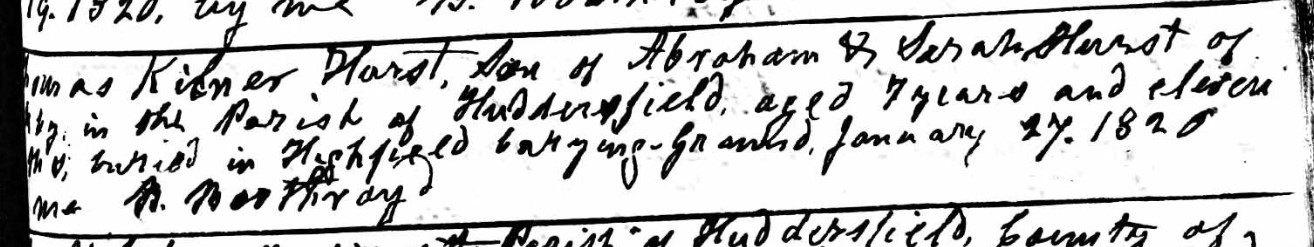 19. 1820, by me B.
omas Kilner Hurst, Son of Abraham & Sarah Hurst of
by, in the Parish of Huddersfield, aged 7 years and eleven
ths, buried in Highfield burying-Ground, January 27. 1820
me B. Boothroyd
Parish of Huddersfield, County of